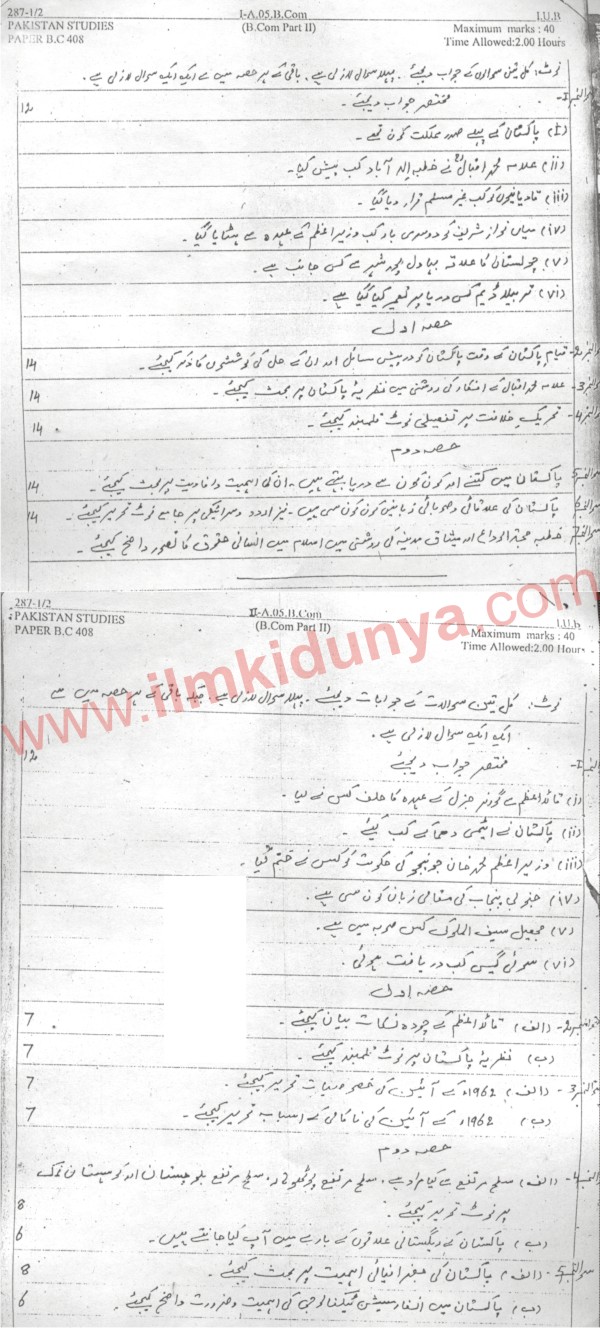 287-1/2 I-A.05.B.Com I.U.B
PAKISTAN STUDIES (B.Com Part II) Maximum marks : 40
PAPER B.C 408 Time Allowed:2.00 Hours
نوٹ: کل تین سوالوں کے جواب دیجئے۔ پہلا سوال لازمی ہے۔ باقی کے ہر حصہ میں سے ایک ایک سوال لازمی ہے۔
سوالنمبر1- مختصر جواب دیجئے۔ 12
(i) پاکستان کے پہلے صدر مملکت کون تھے۔
(ii) علامہ محمد اقبالؒ نے خطبہ الہ آباد کب پیش کیا۔
(iii) قادیانیوں کو کب غیر مسلم قرار دیا گیا۔
(iv) میاں نواز شریف کو دوسری بار کب وزیراعظم کے عہدہ سے ہٹایا گیا۔
(v) چولستان کا علاقہ بہاولپور شہر سے کس جانب ہے۔
(vi) تربیلا ڈیم کس دریا پر تعمیر کیا گیا ہے۔
حصہ اول
سوالنمبر2- قیام پاکستان کے وقت پاکستان کو درپیش مسائل اور ان کے حل کی کوششوں کا ذکر کیجئے۔ 14
سوالنمبر3- علامہ محمد اقبال کے افکار کی روشنی میں نظریۂ پاکستان پر بحث کیجئے۔ 14
سوالنمبر4- تحریک خلافت پر تفصیلی نوٹ قلمبند کیجئے۔ 14
حصہ دوم
سوالنمبر5 پاکستان میں کتنے اور کون کون سے دریا بہتے ہیں۔ ان کی اہمیت و افادیت پر بحث کیجئے۔ 14
سوالنمبر6 پاکستان کی علاقائی و صوبائی زبانیں کون کون سی ہیں۔ نیز اردو و سرائیکی پر جامع نوٹ تحریر کیجئے۔ 14
سوالنمبر7 خطبہ حجۃ الوداع اور میثاق مدینہ کی روشنی میں اسلام میں انسانی حقوق کا تصور واضح کیجئے۔
www.ilmkidunya.com
287-1/2 II-A.05.B.Com I.U.B
PAKISTAN STUDIES (B.Com Part II) Maximum marks : 40
PAPER B.C 408 Time Allowed:2.00 Hours
نوٹ: کل تین سوالات کے جوابات دیجئے۔ پہلا سوال لازمی ہے۔ جبکہ باقی کے ہر حصہ میں سے
ایک ایک سوال لازمی ہے۔
سوالنمبر1- مختصر جواب دیجئے 12
(i) قائداعظم سے گورنر جنرل کے عہدہ کا حلف کس نے لیا۔
(ii) پاکستان نے ایٹمی دھماکے کب کیئے۔
(iii) وزیراعظم محمد خان جونیجو کی حکومت کو کس نے ختم کیا۔
(iv) جنوبی پنجاب کی مقامی زبان کون سی ہے۔
(v) جھیل سیف الملوک کس صوبہ میں ہے۔
(vi) سوئی گیس کب دریافت ہوئی۔
حصہ اول
سوالنمبر2- (الف) قائداعظم کے چودہ نکات بیان کیجئے۔ 7
(ب) نظریۂ پاکستان پر نوٹ قلمبند کیجئے۔ 7
سوالنمبر3- (الف) 1962ء کے آئین کی خصوصیات تحریر کیجئے۔ 7
(ب) 1962ء کے آئین کی ناکامی کے اسباب تحریر کیجئے۔ 7
حصہ دوم
سوالنمبر4- (الف) سطح مرتفع سے کیا مراد ہے۔ سطح مرتفع پوٹھوہار، سطح مرتفع بلوچستان اور کوہستان نمک
پر نوٹ تحریر کیجئے۔ 8
(ب) پاکستان کے ریگستانی علاقوں کے بارے میں آپ کیا جانتے ہیں۔ 6
سوالنمبر5- (الف) پاکستان کی جغرافیائی اہمیت پر بحث کیجئے۔ 8
(ب) پاکستان میں انفارمیشن ٹیکنالوجی کی اہمیت و ضرورت واضح کیجئے۔ 6